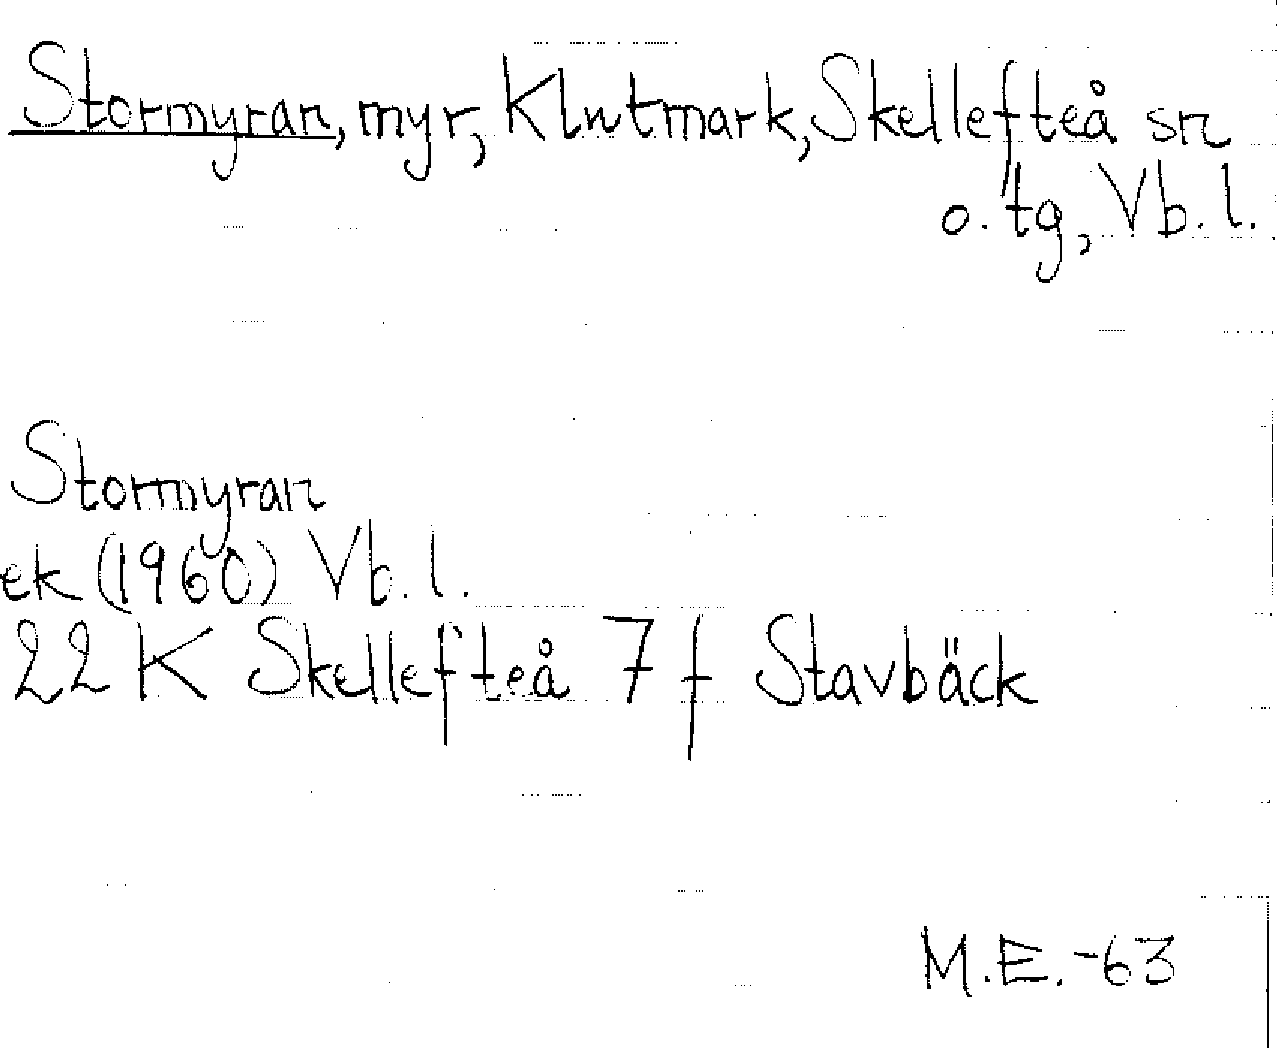 Stormyran, myr, Klutmark, Skellefteå sn
o. tg, Vb. l.
Stormyran
ek (1960) Vb. l.
22 K Skellefteå 7 f Stavbäck
M.E.-63